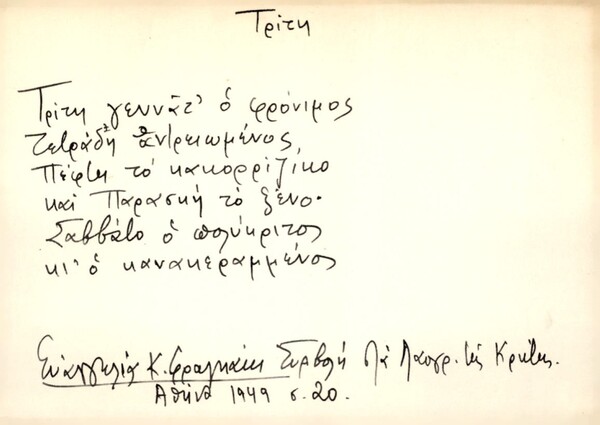 Τρίτη
Τρίτη γεννᾶτ' ὁ φρόνιμος
Τετράδη ὁ ἀντρειωμένος,
Πέφτη τὸ κακορρίζικο
καὶ Παρασκὴ τὸ ξένο.
Σαββάτο ὁ πολύκριτος
κι' ὁ κανακεραμμένος
Εὐαγγελία Κ. Φραγκάκι Συμβολὴ στὰ Λαογρ. τῆς Κρήτης.
Ἀθήνα 1949 σ. 20.